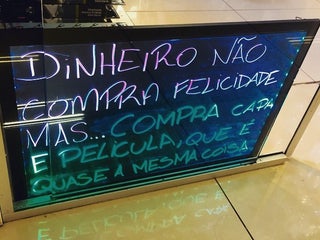 DINHEIRO NÃO
COMPRA FELICIDADE
MAS... COMPRA CAPA
E PELÍCULA, QUE É
QUASE A MESMA COISA